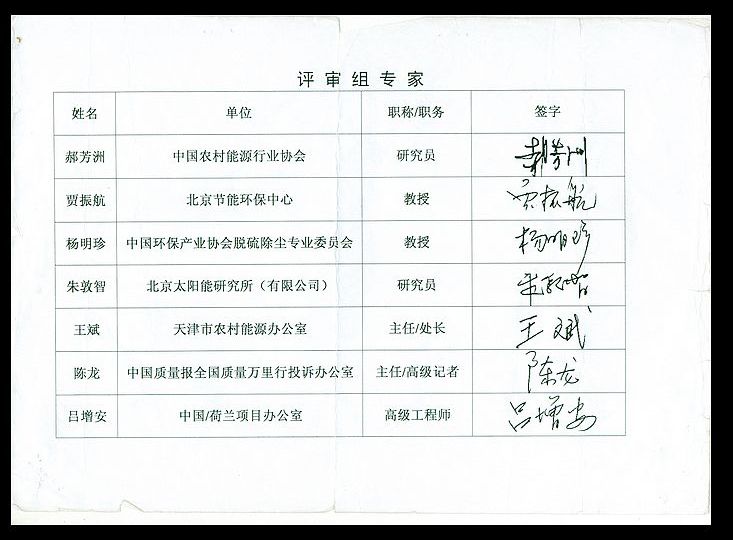 评审组专家
姓名 单位 职称/职务 签字
郝芳洲 中国农村能源行业协会 研究员 郝芳洲
贾振航 北京节能环保中心 教授 贾振航
杨明珍 中国环保产业协会脱硫除尘专业委员会 教授 杨明珍
朱敦智 北京太阳能研究所（有限公司） 研究员 朱敦智
王斌 天津市农村能源办公室 主任/处长 王斌
陈龙 中国质量报全国质量万里行投诉办公室 主任/高级记者 陈龙
吕增安 中国/荷兰项目办公室 高级工程师 吕增安